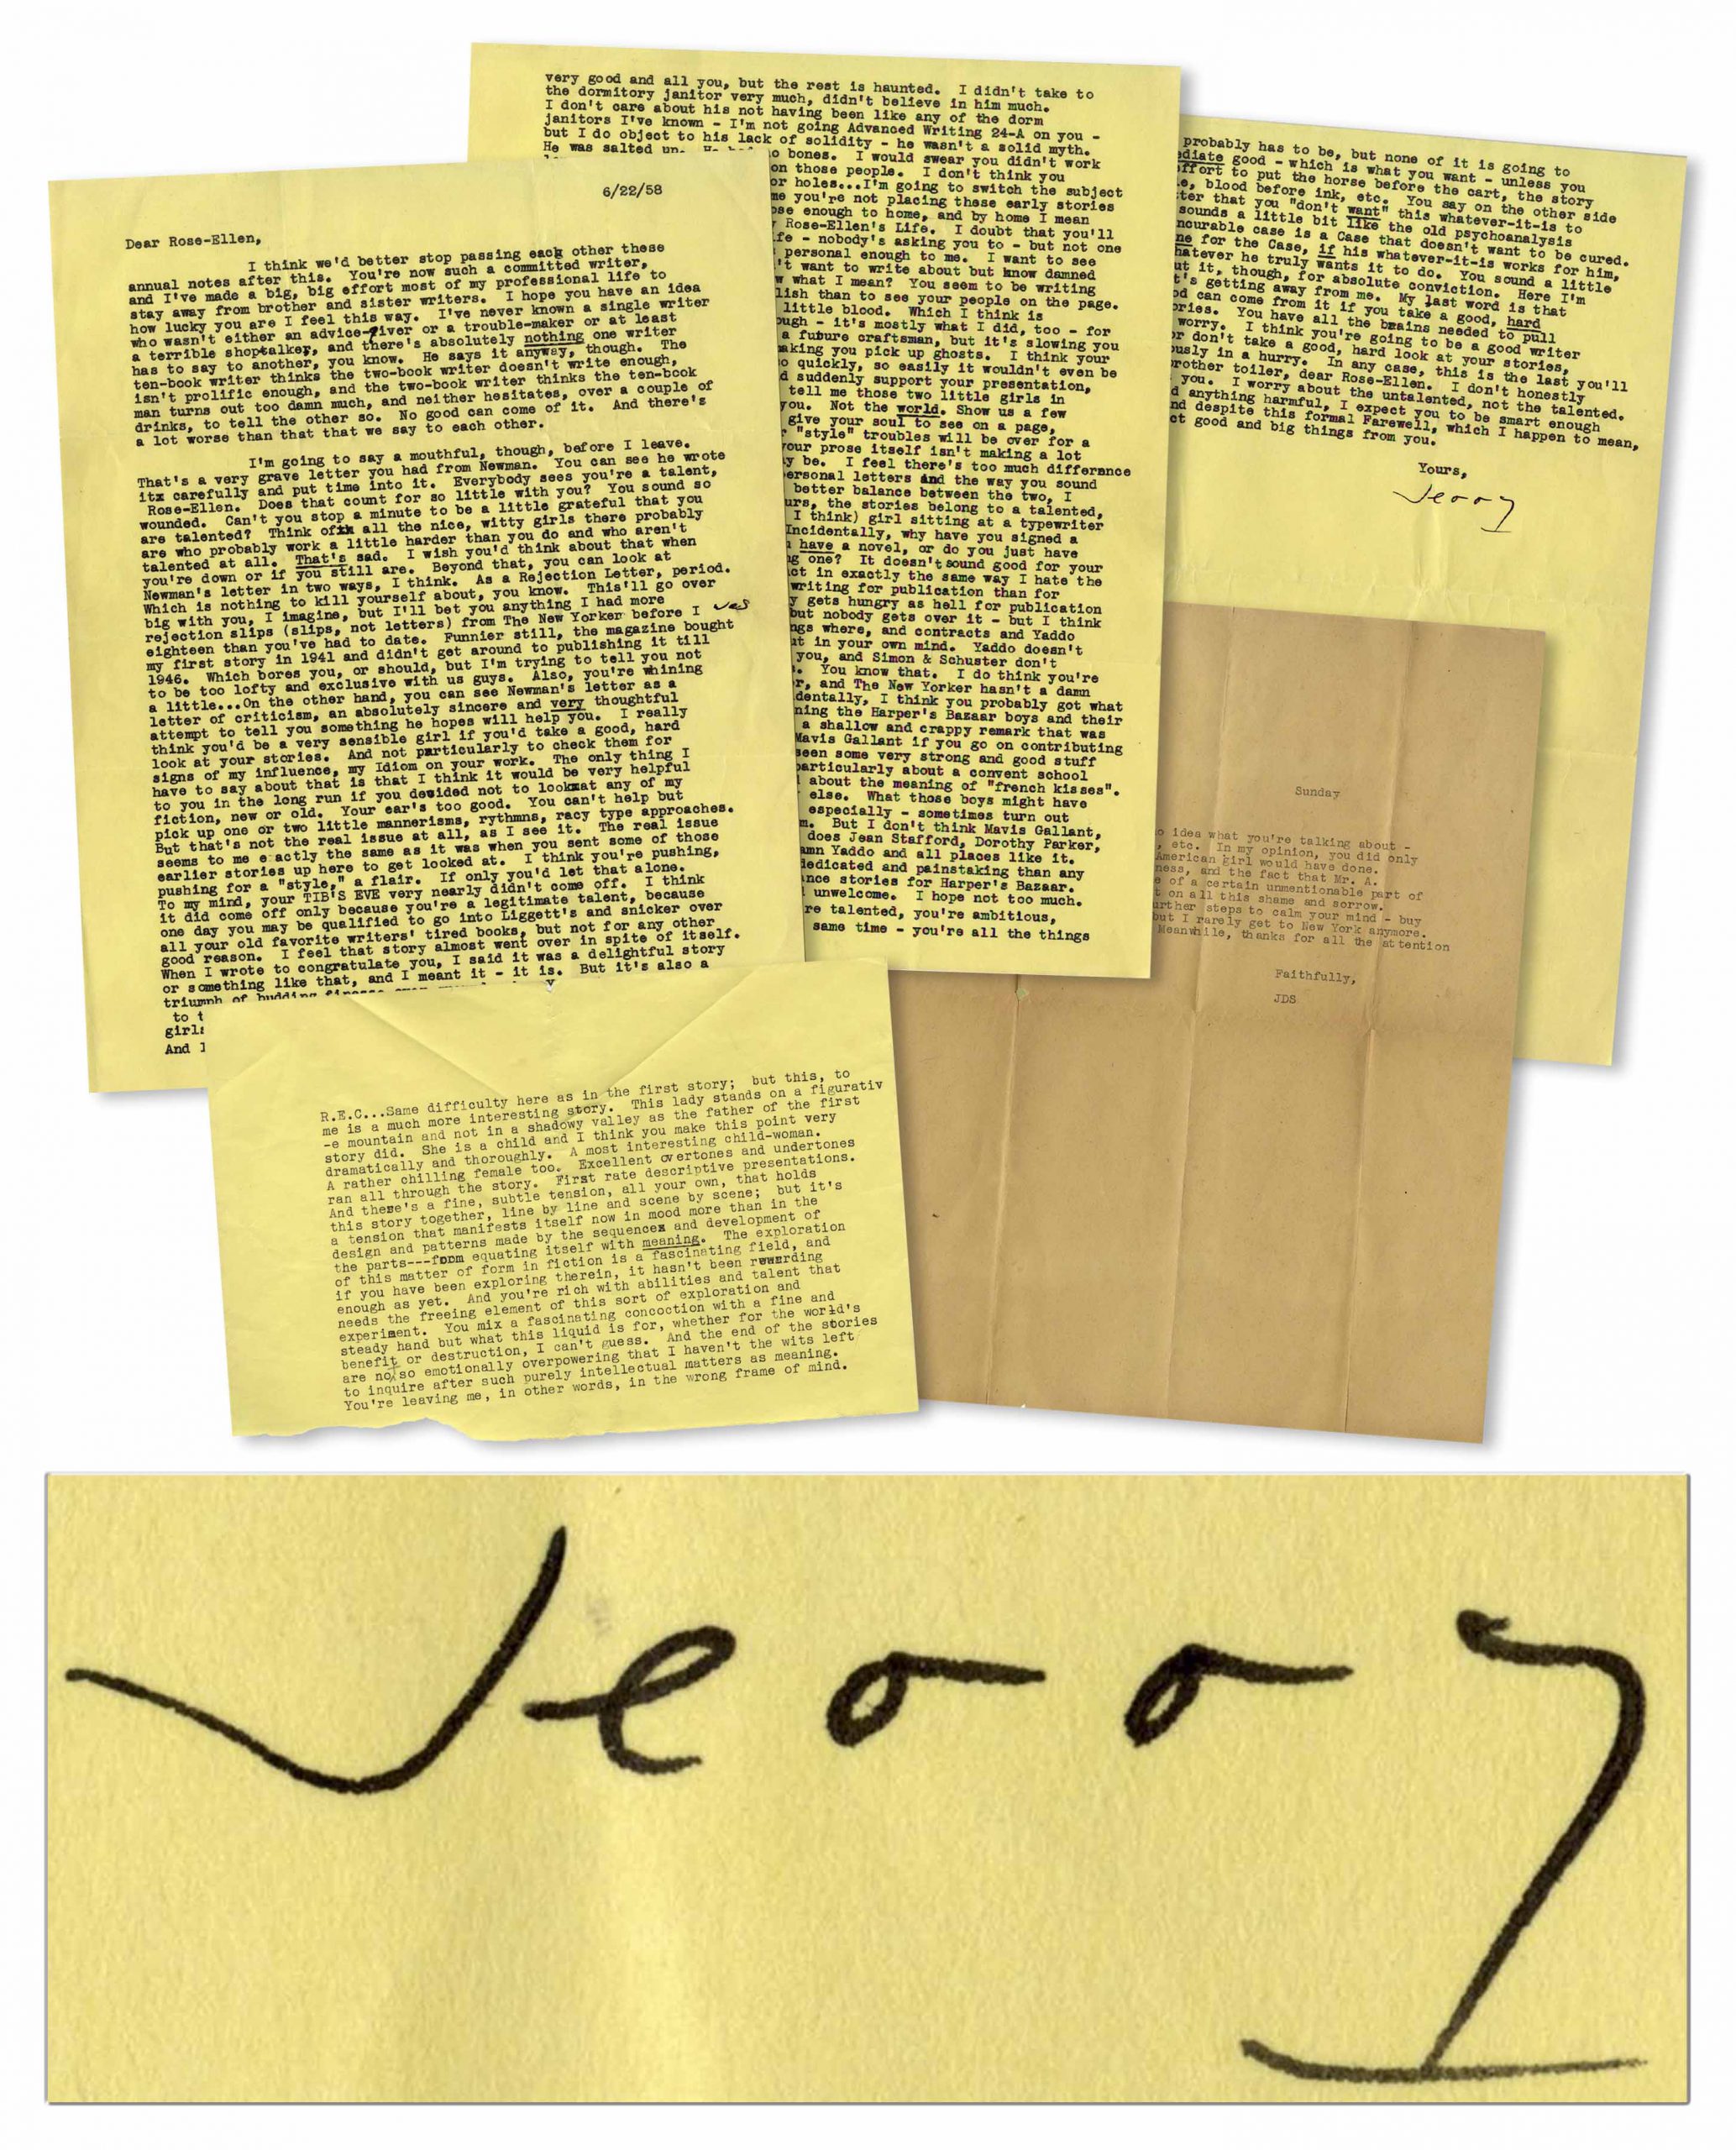 6/22/58
Dear Rose-Ellen,
I think we'd better stop passing each other these
annual notes after this. You're now such a committed writer,
and I've made a big, big effort most of my professional life to
stay away from brother and sister writers. I hope you have an idea
how lucky you are I feel this way. I've never known a single writer
who wasn't either an advice-giver or a trouble-maker or at least
a terrible shoptalker, and there's absolutely nothing one writer
has to say to another, you know. He says it anyway, though. The
ten-book writer thinks the two-book writer doesn't write enough,
isn't prolific enough, and the two-book writer thinks the ten-book
man turns out too damn much, and neither hesitates, over a couple of
drinks, to tell the other so. No good can come of it. And there's
a lot worse than that that we say to each other.
I'm going to say a mouthful, though, before I leave.
That's a very grave letter you had from Newman. You can see he wrote
itx carefully and put time into it. Everybody sees you're a talent,
Rose-Ellen. Does that count for so little with you? You sound so
wounded. Can't you stop a minute to be a little grateful that you
are talented? Think of all the nice, witty girls there probably
are who probably work a little harder than you do and who aren't
talented at all. That's sad. I wish you'd think about that when
you're down or if you still are. Beyond that, you can look at
Newman's letter in two ways, I think. As a Rejection Letter, period.
Which is nothing to kill yourself about, you know. This'll go over
big with you, I imagine, but I'll bet you anything I had more
rejection slips (slips, not letters) from The New Yorker before I was
eighteen than you've had to date. Funnier still, the magazine bought
my first story in 1941 and didn't get around to publishing it till
1946. Which bores you, or should, but I'm trying to tell you not
to be too lofty and exclusive with us guys. Also, you're whining
a little...On the other hand, you can see Newman's letter as a
letter of criticism, an absolutely sincere and very thoughtful
attempt to tell you something he hopes will help you. I really
think you'd be a very sensible girl if you'd take a good, hard
look at your stories. And not particularly to check them for
signs of my influence, my Idiom on your work. The only thing I
have to say about that is that I think it would be very helpful
to you in the long run if you devided not to lookmat any of my
fiction, new or old. Your ear's too good. You can't help but
pick up one or two little mannerisms, rythmns, racy type approaches.
But that's not the real issue at all, as I see it. The real issue
seems to me exactly the same as it was when you sent some of those
earlier stories up here to get looked at. I think you're pushing,
pushing for a "style," a flair. If only you'd let that alone.
To my mind, your TIB'S EVE very nearly didn't come off. I think
it did come off only because you're a legitimate talent, because
one day you may be qualified to go into Liggett's and snicker over
all your old favorite writers' tired books, but not for any other
good reason. I feel that story almost went over in spite of itself.
When I wrote to congratulate you, I said it was a delightful story
or something like that, and I meant it - it is. But it's also a
triumph of budding finesse
to t
girls
And I
very good and all you, but the rest is haunted. I didn't take to
the dormitory janitor very much, didn't believe in him much.
I don't care about his not having been like any of the dorm
janitors I've known - I'm not going Advanced Writing 24-A on you -
but I do object to his lack of solidity - he wasn't a solid myth.
He was salted up. He had no bones. I would swear you didn't work
on those people. I don't think you
or holes...I'm going to switch the subject
me you're not placing these early stories
ose enough to home, and by home I mean
Rose-Ellen's Life. I doubt that you'll
fe - nobody's asking you to - but not one
personal enough to me. I want to see
't want to write about but know damned
w what I mean? You seem to be writing
lish than to see your people on the page.
little blood. Which I think is
ough - it's mostly what I did, too - for
a future craftsman, but it's slowing you
aking you pick up ghosts. I think your
o quickly, so easily it wouldn't even be
d suddenly support your presentation,
tell me those two little girls in
you. Not the world. Show us a few
give your soul to see on a page,
"style" troubles will be over for a
our prose itself isn't making a lot
y be. I feel there's too much difference
ersonal letters and the way you sound
better balance between the two, I
urs, the stories belong to a talented,
I think) girl sitting at a typewriter
Incidentally, why have you signed a
have a novel, or do you just have
ng one? It doesn't sound good for your
ct in exactly the same way I hate the
writing for publication than for
y gets hungry as hell for publication
but nobody gets over it - but I think
ngs where, and contracts and Yaddo
ut in your own mind. Yaddo doesn't
you, and Simon & Schuster don't
. You know that. I do think you're
r, and The New Yorker hasn't a damn
dentally, I think you probably got what
ning the Harper's Bazaar boys and their
a shallow and crappy remark that was
Mavis Gallant if you go on contributing
seen some very strong and good stuff
particularly about a convent school
about the meaning of "french kisses".
else. What those boys might have
especially - sometimes turn out
m. But I don't think Mavis Gallant,
does Jean Stafford, Dorothy Parker,
amn Yaddo and all places like it.
dedicated and painstaking than any
nce stories for Harper's Bazaar.
unwelcome. I hope not too much.
re talented, you're ambitious,
same time - you're all the things
probably has to be, but none of it is going to
ediate good - which is what you want - unless you
effort to put the horse before the cart, the story
e, blood before ink, etc. You say on the other side
ter that you "don't want" this whatever-it-is to
sounds a little bit like the old psychoanalysis
ncurable case is a Case that doesn't want to be cured.
ne for the Case, if his whatever-it-is works for him,
hatever he truly wants it to do. You sound a little
ut it, though, for absolute conviction. Here I'm
t's getting away from me. My last word is that
od can come from it if you take a good, hard
ories. You have all the brains needed to pull
worry. I think you're going to be a good writer
or don't take a good, hard look at your stories,
ously in a hurry. In any case, this is the last you'll
rother toiler, dear Rose-Ellen. I don't honestly
you. I worry about the untalented, not the talented.
d anything harmful, I expect you to be smart enough
nd despite this formal Farewell, which I happen to mean,
ct good and big things from you.
Yours,
Jerry
Sunday
o idea what you're talking about -
, etc. In my opinion, you did only
American girl would have done.
ness, and the fact that Mr. A.
e of a certain unmentionable part of
t on all this shame and sorrow.
urther steps to calm your mind - buy
but I rarely get to New York anymore.
Meanwhile, thanks for all the attention
Faithfully,
JDS
R.E.C...Same difficulty here as in the first story; but this, to
me is a much more interesting story. This lady stands on a figurativ
-e mountain and not in a shadowy valley as the father of the first
story did. She is a child and I think you make this point very
dramatically and thoroughly. A most interesting child-woman.
A rather chilling female too. Excellent overtones and undertones
ran all through the story. First rate descriptive presentations.
And there's a fine, subtle tension, all your own, that holds
this story together, line by line and scene by scene; but it's
a tension that manifests itself now in mood more than in the
design and patterns made by the sequences and development of
the parts---form equating itself with meaning. The exploration
of this matter of form in fiction is a fascinating field, and
if you have been exploring therein, it hasn't been rewarding
enough as yet. And you're rich with abilities and talent that
needs the freeing element of this sort of exploration and
experiment. You mix a fascinating concoction with a fine and
steady hand but what this liquid is for, whether for the world's
benefit or destruction, I can't guess. And the end of the stories
are not so emotionally overpowering that I haven't the wits left
to inquire after such purely intellectual matters as meaning.
You're leaving me, in other words, in the wrong frame of mind.
Jerry